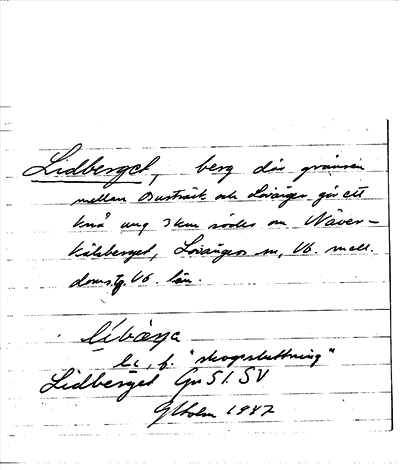 Lidberget, berg där gränsen
mellan Burträsk och Lövånger gör ett
knä ung 3 km söder om Näver-
kålsberget, Lövångers sn, Vb. mell.
doms.g. Vb. län.
líbærja
li, f. "skogssluttning".
Lidberget Gu 51. SV
GHolm 1947